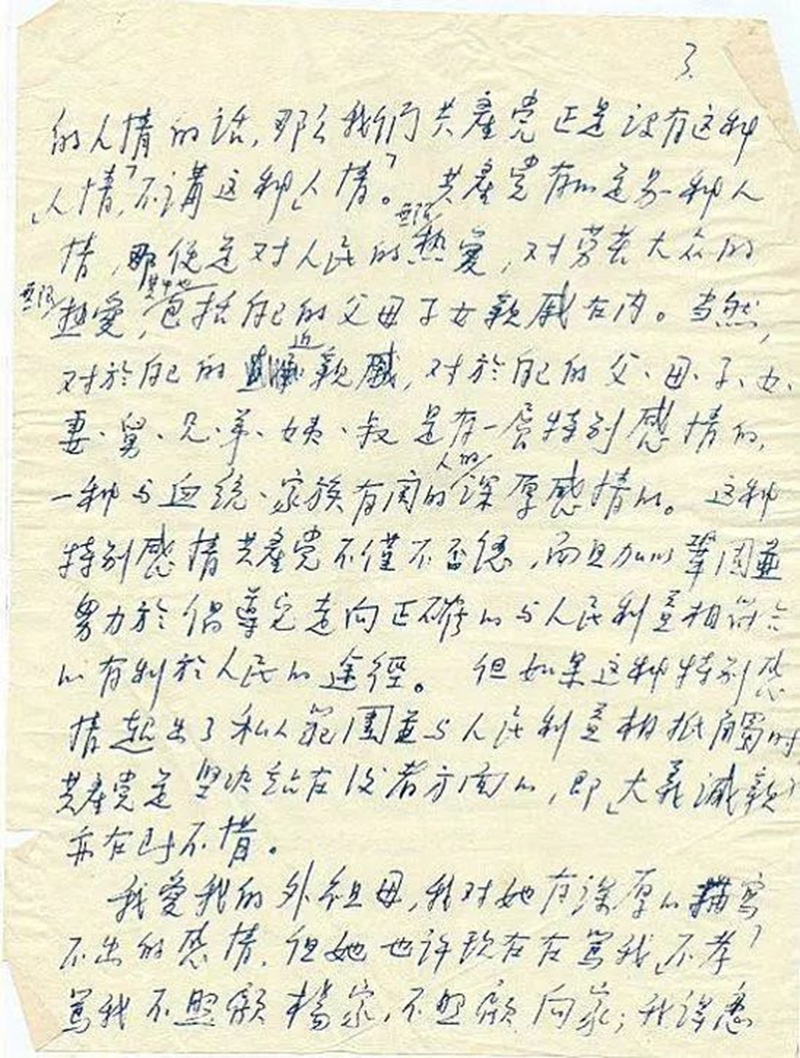 3.
的人情的话，那么我们共產党正是没有这种
「人情」，不講这种「人情」。共產党有的是另一种人
情，那便是对人民的無限熱愛，对劳苦大众的
無限熱愛，其中也包括自己的父母子女親戚在内。当然，
对於自己的近親戚，对於自己的父、母、子、女、
妻、舅、兄、弟、姨、叔是有一層特别感情的，
一种与血统、家族有関的人的深厚感情的。这种
特别感情共產党不僅不否認，而且加以鞏固並
努力於倡導它走向正確的与人民利益相符合
的有利於人民的途徑。但如果这种特别感
情超出了私人範圍並与人民利益相抵觸时
共產党是坚决站在后者方面的，即「大義滅親」
亦在所不惜。
我愛我的外祖母，我对她有深厚的描寫
不出的感情，但她也许现在在罵我「不孝」
罵我不照顧楊家，不照顧向家；我得忍